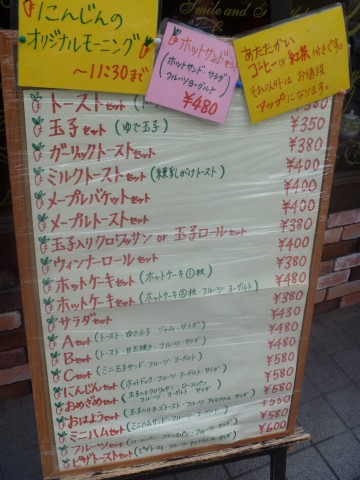 にんじんの
オリジナルモーニング
〜11:30まで
ホットサンドセット
(ホットサンド・サラダ
フルーツヨーグルト)
¥480
あたたかい
コーヒー or 紅茶付きです。
それ以外はお値段
アップになります。
Smile and
トーストセット
玉子セット (ゆで玉子) ¥350
ガーリックトーストセット ¥380
ミルクトーストセット (練乳がけトースト) ¥400
メープルバケットセット ¥400
メープルトーストセット ¥400
玉子入りクロワッサン or 玉子ロールセット ¥380
ウィンナーロールセット ¥400
ホットケーキセット (ホットケーキ①枚) ¥380
ホットケーキセット (ホットケーキ②枚・フルーツ・ヨーグルト) ¥480
サラダセット ¥380
Aセット (トースト・ゆで玉子・ジャム・サラダ) ¥430
Bセット (トースト・目玉焼き・フルーツ・サラダ) ¥480
Cセット (ミニ玉子サンド・フルーツ・ヨーグルト) ¥480
にんじんセット (ホットドッグ・フルーツ・ヨーグルト・サラダ) ¥580
おめざめセット (玉子入りクロワッサン・ロールパン フルーツ・ヨーグルト・サラダ) ¥580
おはようセット ¥580
ミニハムセット (ミニハムサンド・フルーツ・ヨーグルト) ¥550
フルーツセット ¥580
ピザトーストセット ¥600